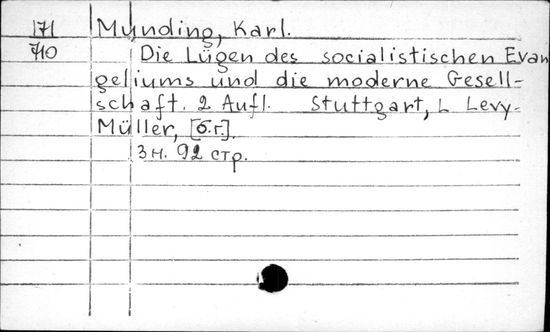 171 Munding, Karl.
710 Die Lügen des socialistischen Evan
geliums und die moderne Gesell-
schaft. 2 Aufl. Stuttgart, L Levy-
Müller, [б.г.].
3 н. 92 стр.